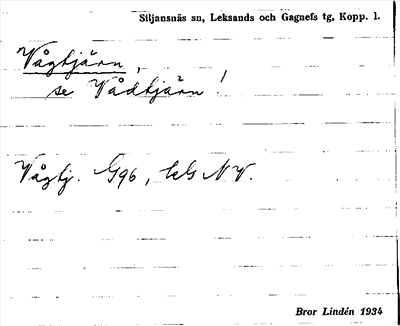 Siljansnäs sn, Leksands och Gagnefs tg, Kopp. l.
Vågtjärn,
se Vådtjärn!
Vågtj. G96, kG NV.
Bror Lindén 1934